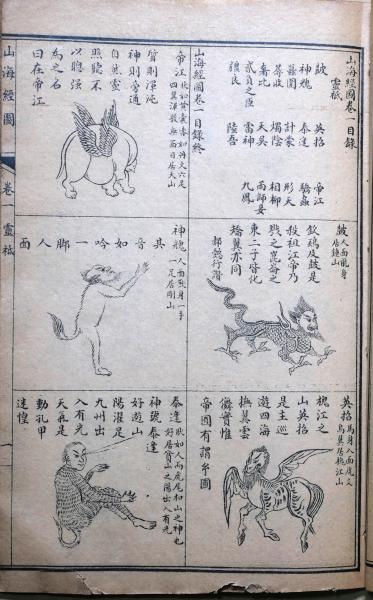 山海經圖卷一目錄
靈祇
鼓 英招 帝江
神䰠 泰逢 驕蟲
蓐收 計蒙 形天
燭陰 相柳
奢比 天吳 雨師妾
貳負之臣 雷神 九鳳
彊良 陸吾
山海經圖卷一目錄終
帝江 狀如黃囊赤如丹火六足
四翼渾敦無面目居天山
質則渾沌
神則旁通
自然靈
照聽不
以聰强
為之名
曰在帝江
鼓 人面龍身
居鍾山
欽䲹及鼓是
殺祖江帝乃
戮之崑崙之
東二子皆化
矯翼亦同
神䰠 人面獸身一手
一足居剛山
其音如吟一腳人面
英招 馬身人面虎文
鳥翼居槐江山
槐江之
山英招
是主巡
遊四海
撫翼雲
儛實惟
帝囿有謂平圃
泰逢 狀如人而虎尾和山之神也
好居萯山之陽出入有光
神號泰逢
好遊山
陽濯足
九州出
入有光
天氣是
動孔甲
迷惶
山海經圖 卷一 靈祇